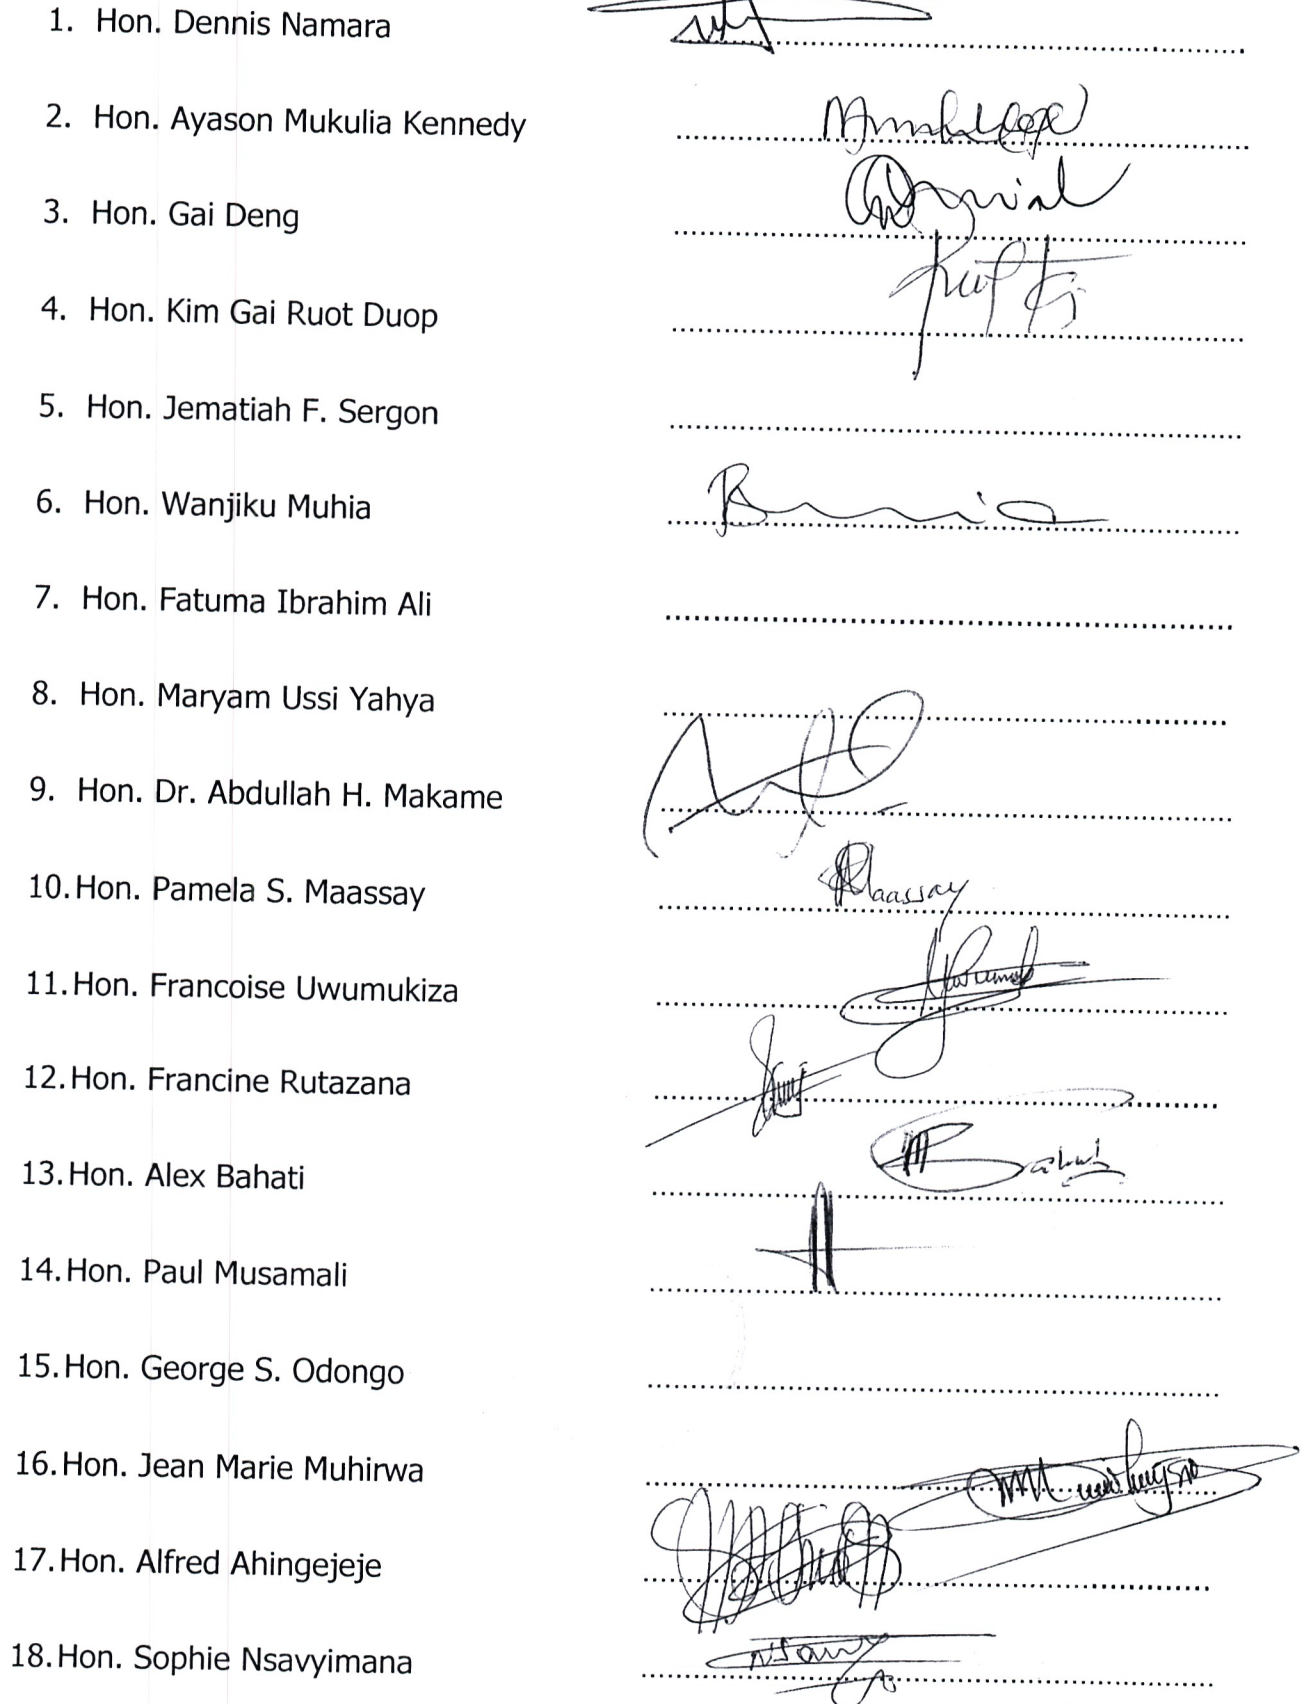 1. Hon. Dennis Namara
2. Hon. Ayason Mukulia Kennedy
3. Hon. Gai Deng
4. Hon. Kim Gai Ruot Duop
5. Hon. Jematiah F. Sergon
6. Hon. Wanjiku Muhia
7. Hon. Fatuma Ibrahim Ali
8. Hon. Maryam Ussi Yahya
9. Hon. Dr. Abdullah H. Makame
10. Hon. Pamela S. Maassay Maassay
11. Hon. Francoise Uwumukiza
12. Hon. Francine Rutazana
13. Hon. Alex Bahati
14. Hon. Paul Musamali
15. Hon. George S. Odongo
16. Hon. Jean Marie Muhirwa
17. Hon. Alfred Ahingejeje
18. Hon. Sophie Nsavyimana